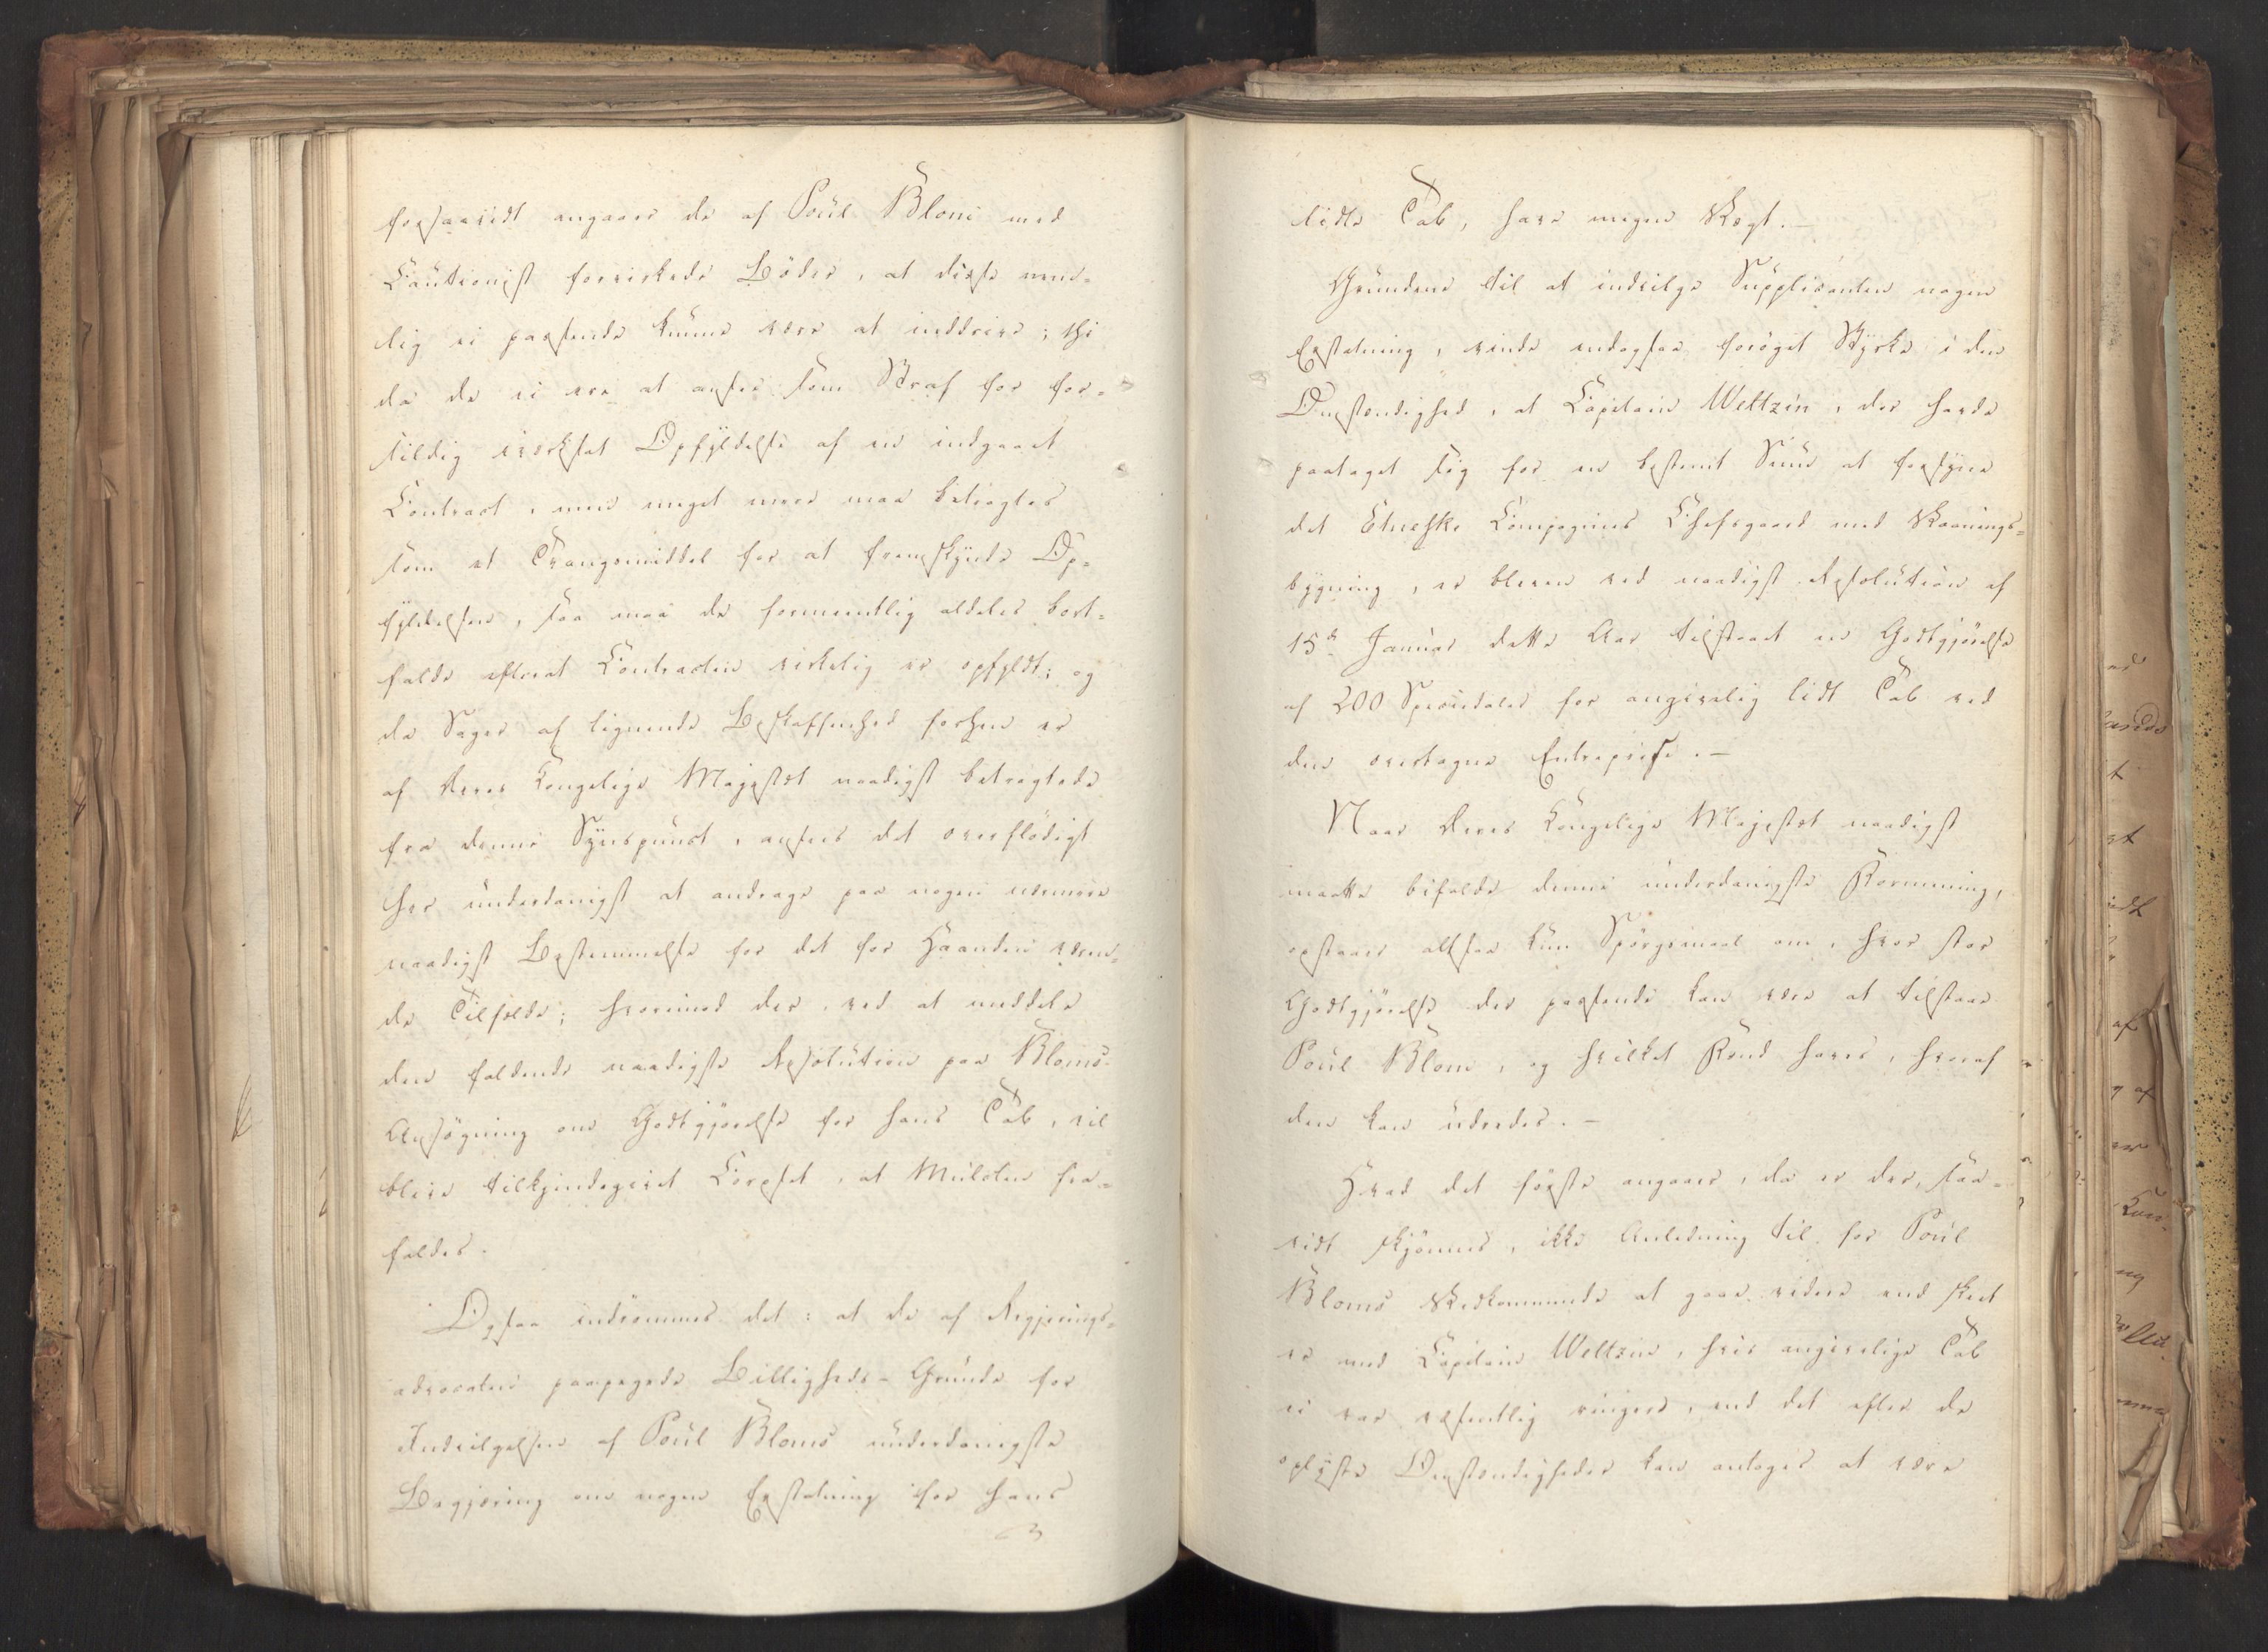 forsaavidt angaaer de af Poul Blom med
Cautionist forvirkede Böder, at disse nem-
lig ei passende kunne være at inddrive; thi
da de ei ere at ansee som Straf for for-
sildig iværksat Opfyldelse af en indgaaet
Contract, men meget mere maa betragtes
som et Tvangsmiddel for at fremskynde Op-
fyldelsen, saa maa de formeentlig aldeles bort-
falde efterat Contracten virkelig er opfyldt; og
da Sager af lignende Beskaffenhed forhen er
af Deres Kongelige Majestæt naadigst betragtede
fra denne Synspunct, ansees det overflödigt
her underdanigst at andrage paa nogen nærmere
naadigst Bestemmelse for det for Haanden væren-
de Tilfælde; hvorimod der, ved at meddele
den faldende naadigste Resolution paa Bloms
Ansögning om Godtgjörelse for hans Tab, vil
blive tilkjendegivet Corpset, at Mulcten fra-
faldes.
Ogsaa indrömmes det: at de af Regjerings-
advocaten paapegede Billigheds-Grunde for
Indvilgelsen af Poul Bloms underdanigste
Begjering om nogen Erstatning for hans
lidte Tab, have megen Vægt.-
Grundene til at indvilge Supplicanten nogen
Erstatning, vinde endogsaa foröget Styrke i den
Omstændighed, at Capitain Weltzin, der havde
paataget sig for en bestemt Sum at forsyne
det Etneske Compagnies Chefsgaard med Vaanings-
bygning, er bleven ved naadigst Resolution af
15de Januar dette Aar tilstaaet en Godtgjörelse
af 200 Speciedaler for angivelig lidt Tab ved
den overtagne Entreprise.-
Naar Deres Kongelige Majestæt naadigst
maatte bifalde denne underdanigste Formening,
opstaaer altsaa kun Spörgsmaal om, hvor stor
Godtgjörelse der passende kan være at tilstaae
Poul Blom, og hvilket Fond haves, hvoraf
den kan udredes.-
Hvad det förste angaaer, da er der, saa-
vidt skjönnes, ikke Anledning til for Poul
Bloms Vedkommende at gaae videre end skeet
er med Capitain Weltzin, hvis angivelige Tab
ei var væsentlig ringere, end det efter de
oplyste Omstændigheder kan antages at være